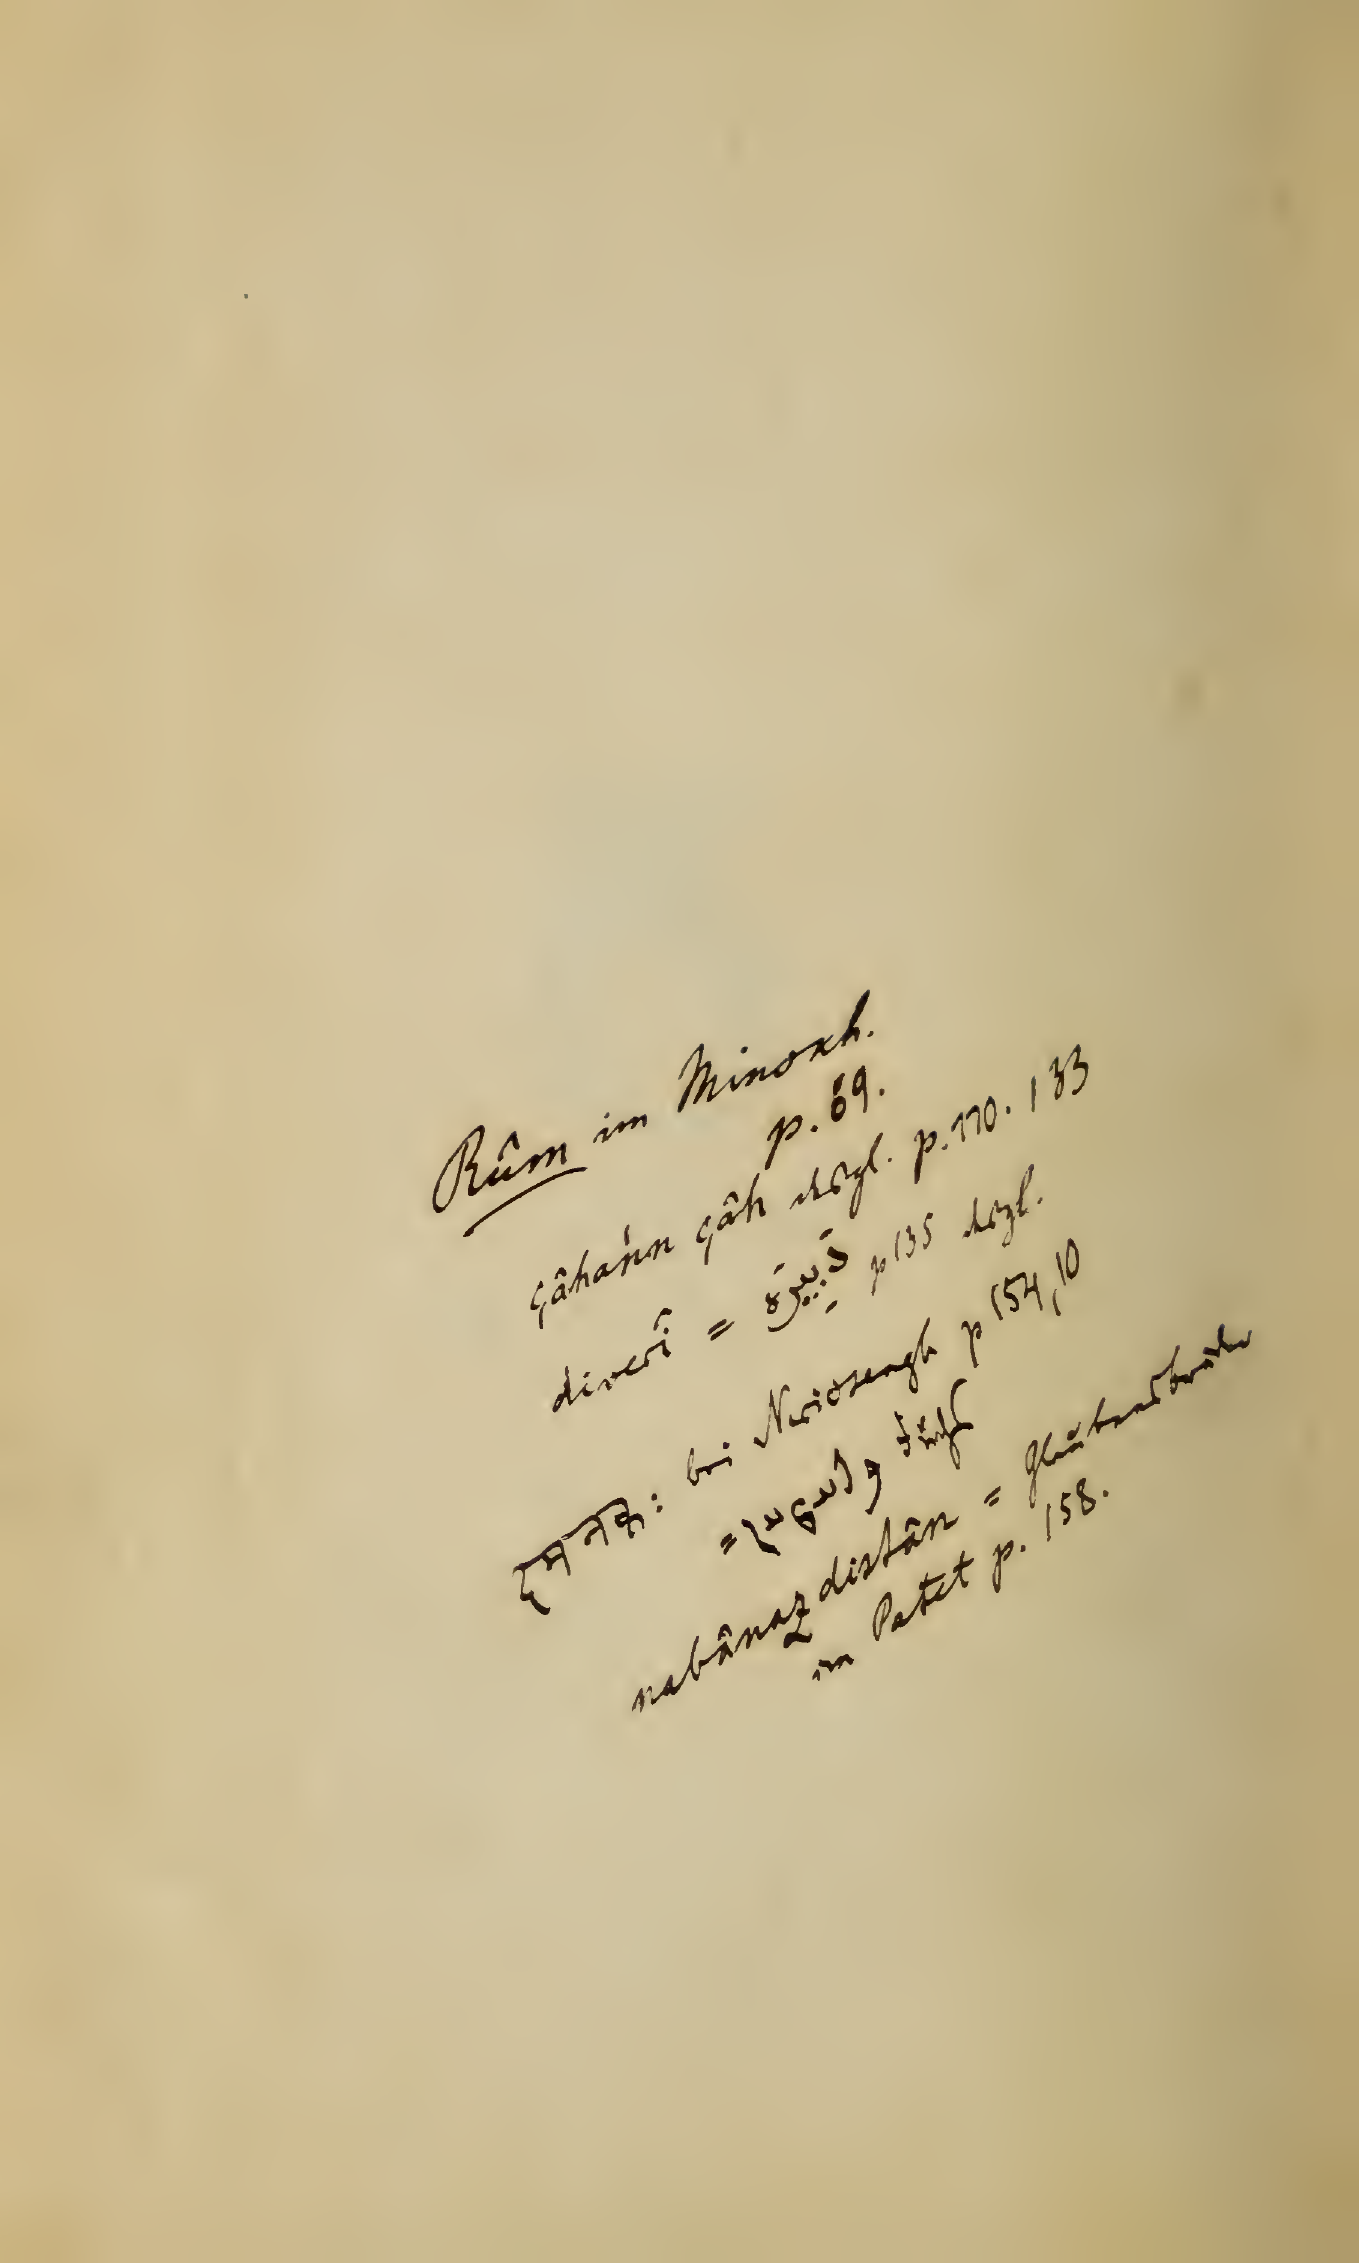 Rûm im Minoxh.
p. 69.
çâhann çâh dsgl. p. 110. 133
diverî = دَبِيرَه p 135 dsgl.
दूमनकः bei Neriosengh p 154,10
=
nabânazdistân = Glaubensbrüder
im Patet p. 158.